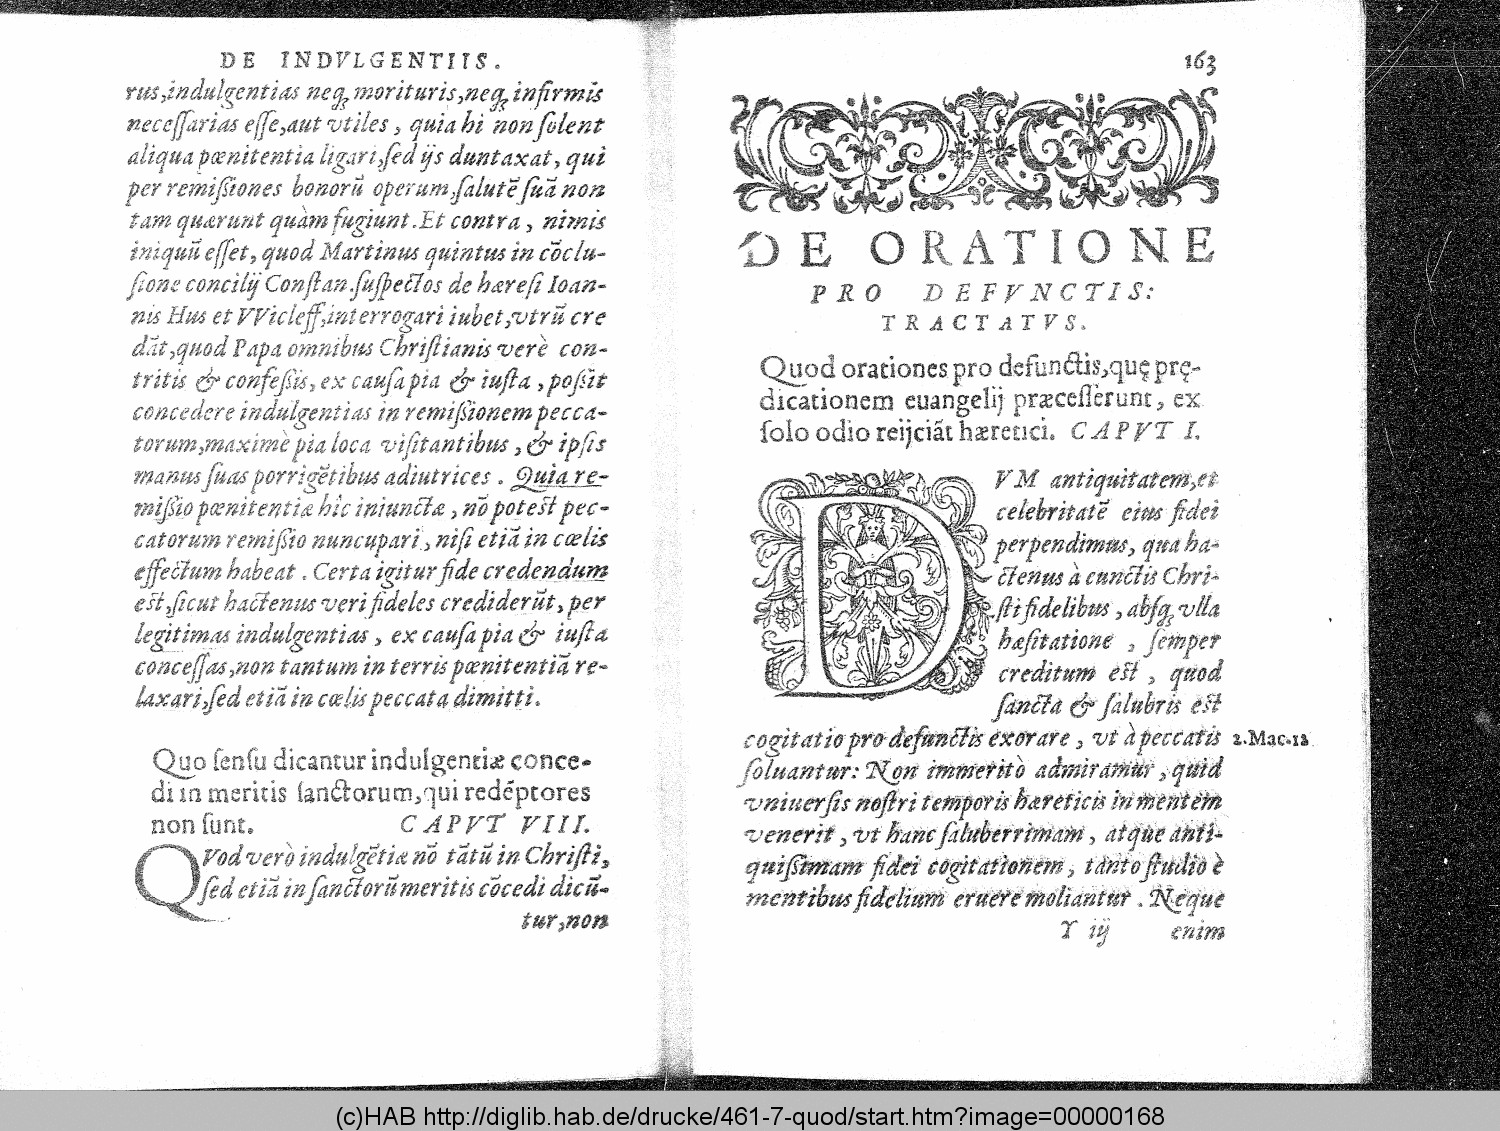 DE INDVLGENTIIS.
rus,indulgentias neq; morituris,neq; infirmis
neceſſarias eſſe,aut vtiles, quia hi non ſolent
aliqua pœnitentia ligari,ſed ijs duntaxat, qui
per remiſsiones bonorũ operum,ſalutẽ ſuã non
tam quærunt quàm fugiunt. Et contra, nimis
iniquũ eſſet, quod Martinus quintus in cõclu-
ſione concilij Conſtan.ſuſpectos de hæreſi Ioan-
nis Hus et VVicleff,interrogari iubet,vtrũ cre
dãt,quod Papa omnibus Chriſtianis verè con-
tritis & confeſsis, ex cauſa pia & iuſta, poſsit
concedere indulgentias in remiſsionem pecca-
torum,maximè pia loca viſitantibus, & ipſis
manus ſuas porrigẽtibus adiutrices. Quia re-
miſsio pœnitentiæ hîc iniunctæ, nõ poteſt pec-
catorum remiſsio nuncupari, niſi etiã in cœlis
effectum habeat. Certa igitur fide credendum
eſt,ſicut hactenus veri fideles crediderũt, per
legitimas indulgentias, ex cauſa pia & iuſta
conceſſas,non tantum in terris pœnitentiã re-
laxari,ſed etiã in cœlis peccata dimitti.
Quo ſenſu dicantur indulgentiæ conce-
di in meritis ſanctorum,qui redẽptores
non ſunt. CAPVT VIII.
QVod verò indulgẽtiæ nõ tãtũ in Chriſti,
ſed etiã in ſanctorũ meritis cõcedi dicũ-
tur,non
163
DE ORATIONE
PRO DEFVNCTIS:
TRACTATVS.
Quod orationes pro defunctis,quę prę-
dicationem euangelij præceſſerunt, ex
ſolo odio reijciãt hæretici. CAPVT I.
DVM antiquitatem,et
celebritatẽ eius fidei
perpendimus, qua ha-
ctenus à cunctis Chri-
ſti fidelibus, abſq; vlla
hæſitatione, ſemper
creditum eſt, quod
ſancta & ſalubris eſt
cogitatio pro defunctis exorare, vt à peccatis 2.Mac.12
ſoluantur: Non immeritò admiramur, quid
vniuerſis noſtri temporis hæreticis in mentem
venerit, vt hanc ſaluberrimam, atque anti-
quiſsimam fidei cogitationem, tanto ſtudio è
mentibus fidelium eruere moliantur. Neque
Y iij enim
(c)HAB http://diglib.hab.de/drucke/461-7-quod/start.htm?image=00000168